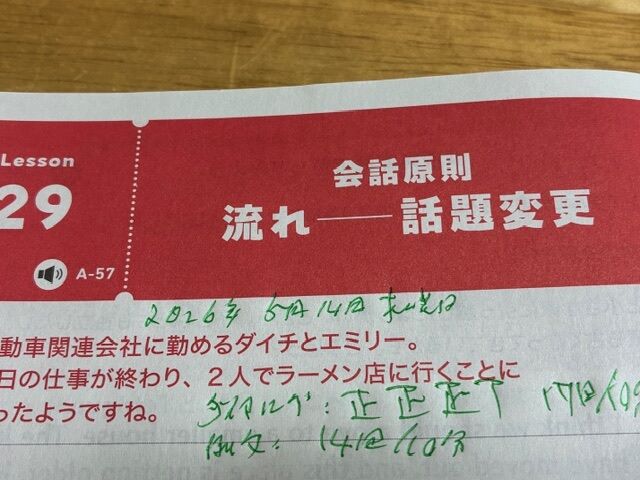 Lesson
29
A-57
会話原則
流れ――話題変更
2026年 5月14日 木曜日
動車関連会社に勤めるダイチとエミリー。
日の仕事が終わり、2人でラーメン店に行くことに
ったようですね。
ダイアログ: 正 正 正 T 17回/10分
例文: 14回/10分